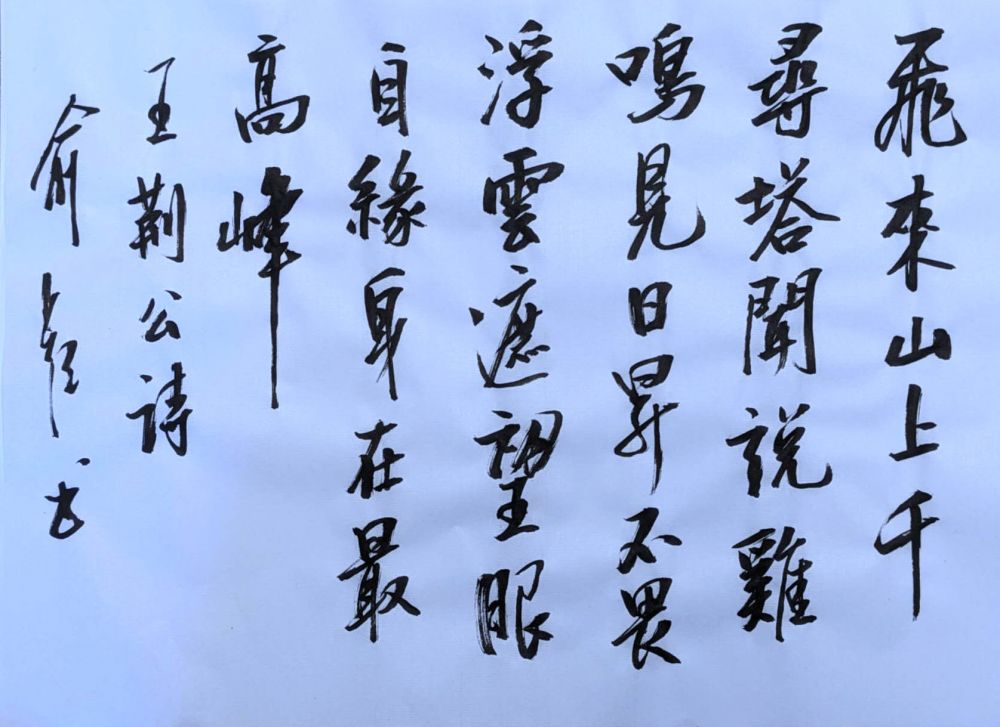 飛來山上千
尋塔聞説雞
鳴見日昇不畏
浮雲遮望眼
自緣身在最
高峰
王荊公詩
俞